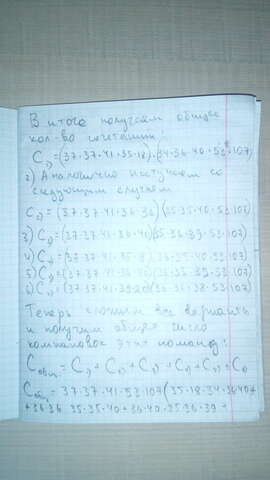 В итоге получаем общее
кол-во сочетаний:
C₁₎ = (37·37·41·35·18)·(34·36·40·53·107)
2) Аналогично поступаем со
следующим случаем
C₂₎ = (37·37·41·36·36)(35·35·40·53·107)
3) C₃₎ = (37·37·41·36·40)(35·36·39·53·107)
4) C₄₎ = (37·37·41·35·8)(36·35·40·53·107)
5) C₅₎ = (37·37·41·36·20)(36·35·39·53·107)
6) C₆₎ = (37·37·41·39·20)(36·36·38·53·107)
Теперь сложим все варианты
и получим общее число
компановок этих команд:
Cобщ = C₁₎ + C₂₎ + C₃₎ + C₄₎ + C₅₎ + C₆₎
Cобщ = 37·37·41·53·107(35·18·34·36·40+
+36·36·35·35·40+36·40·35·36·39+